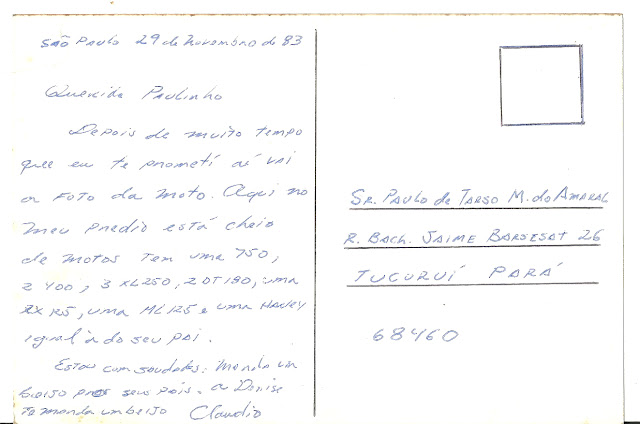 São Paulo 29 de novembro de 83
Querido Paulinho
Depois de muito tempo
que eu te prometi aí vai
a foto da moto. Aqui no
meu predio está cheio
de motos tem uma 750,
2 400, 3 XL250, 2 DT180, uma
RX125, uma ML125 e uma Harley
igual à do seu pai.
Estou com saudades. Manda um
beijo pros seus pais. a Denise
te manda um beijo Claudio
Sr. Paulo de Tarso M. do Amaral
R. Bach. Jaime Barsesat 26
Tucuruí Pará
68460